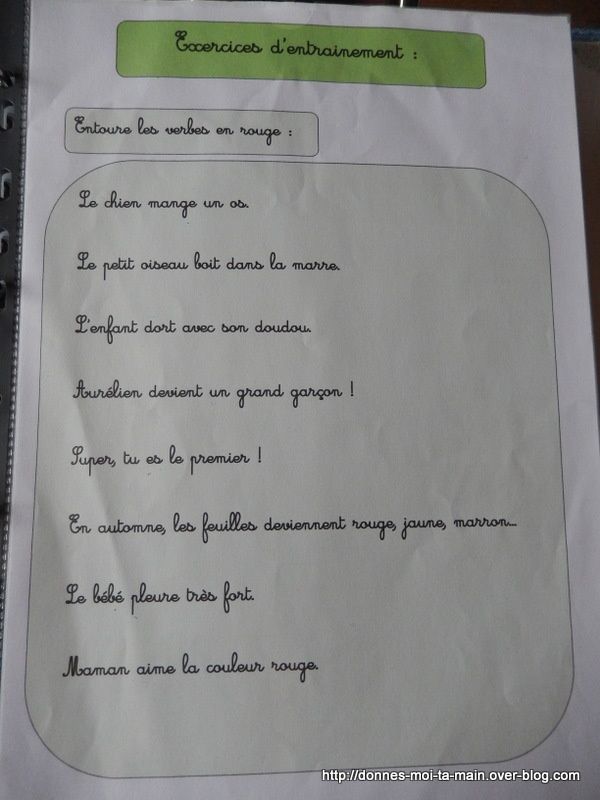 Exercices d'entrainement :
Entoure les verbes en rouge :
Le chien mange un os.
Le petit oiseau boit dans la marre.
L'enfant dort avec son doudou.
Aurélien devient un grand garçon !
Super, tu es le premier !
En automne, les feuilles deviennent rouge, jaune, marron...
Le bébé pleure très fort.
Maman aime la couleur rouge.
http://donnes-moi-ta-main.over-blog.com